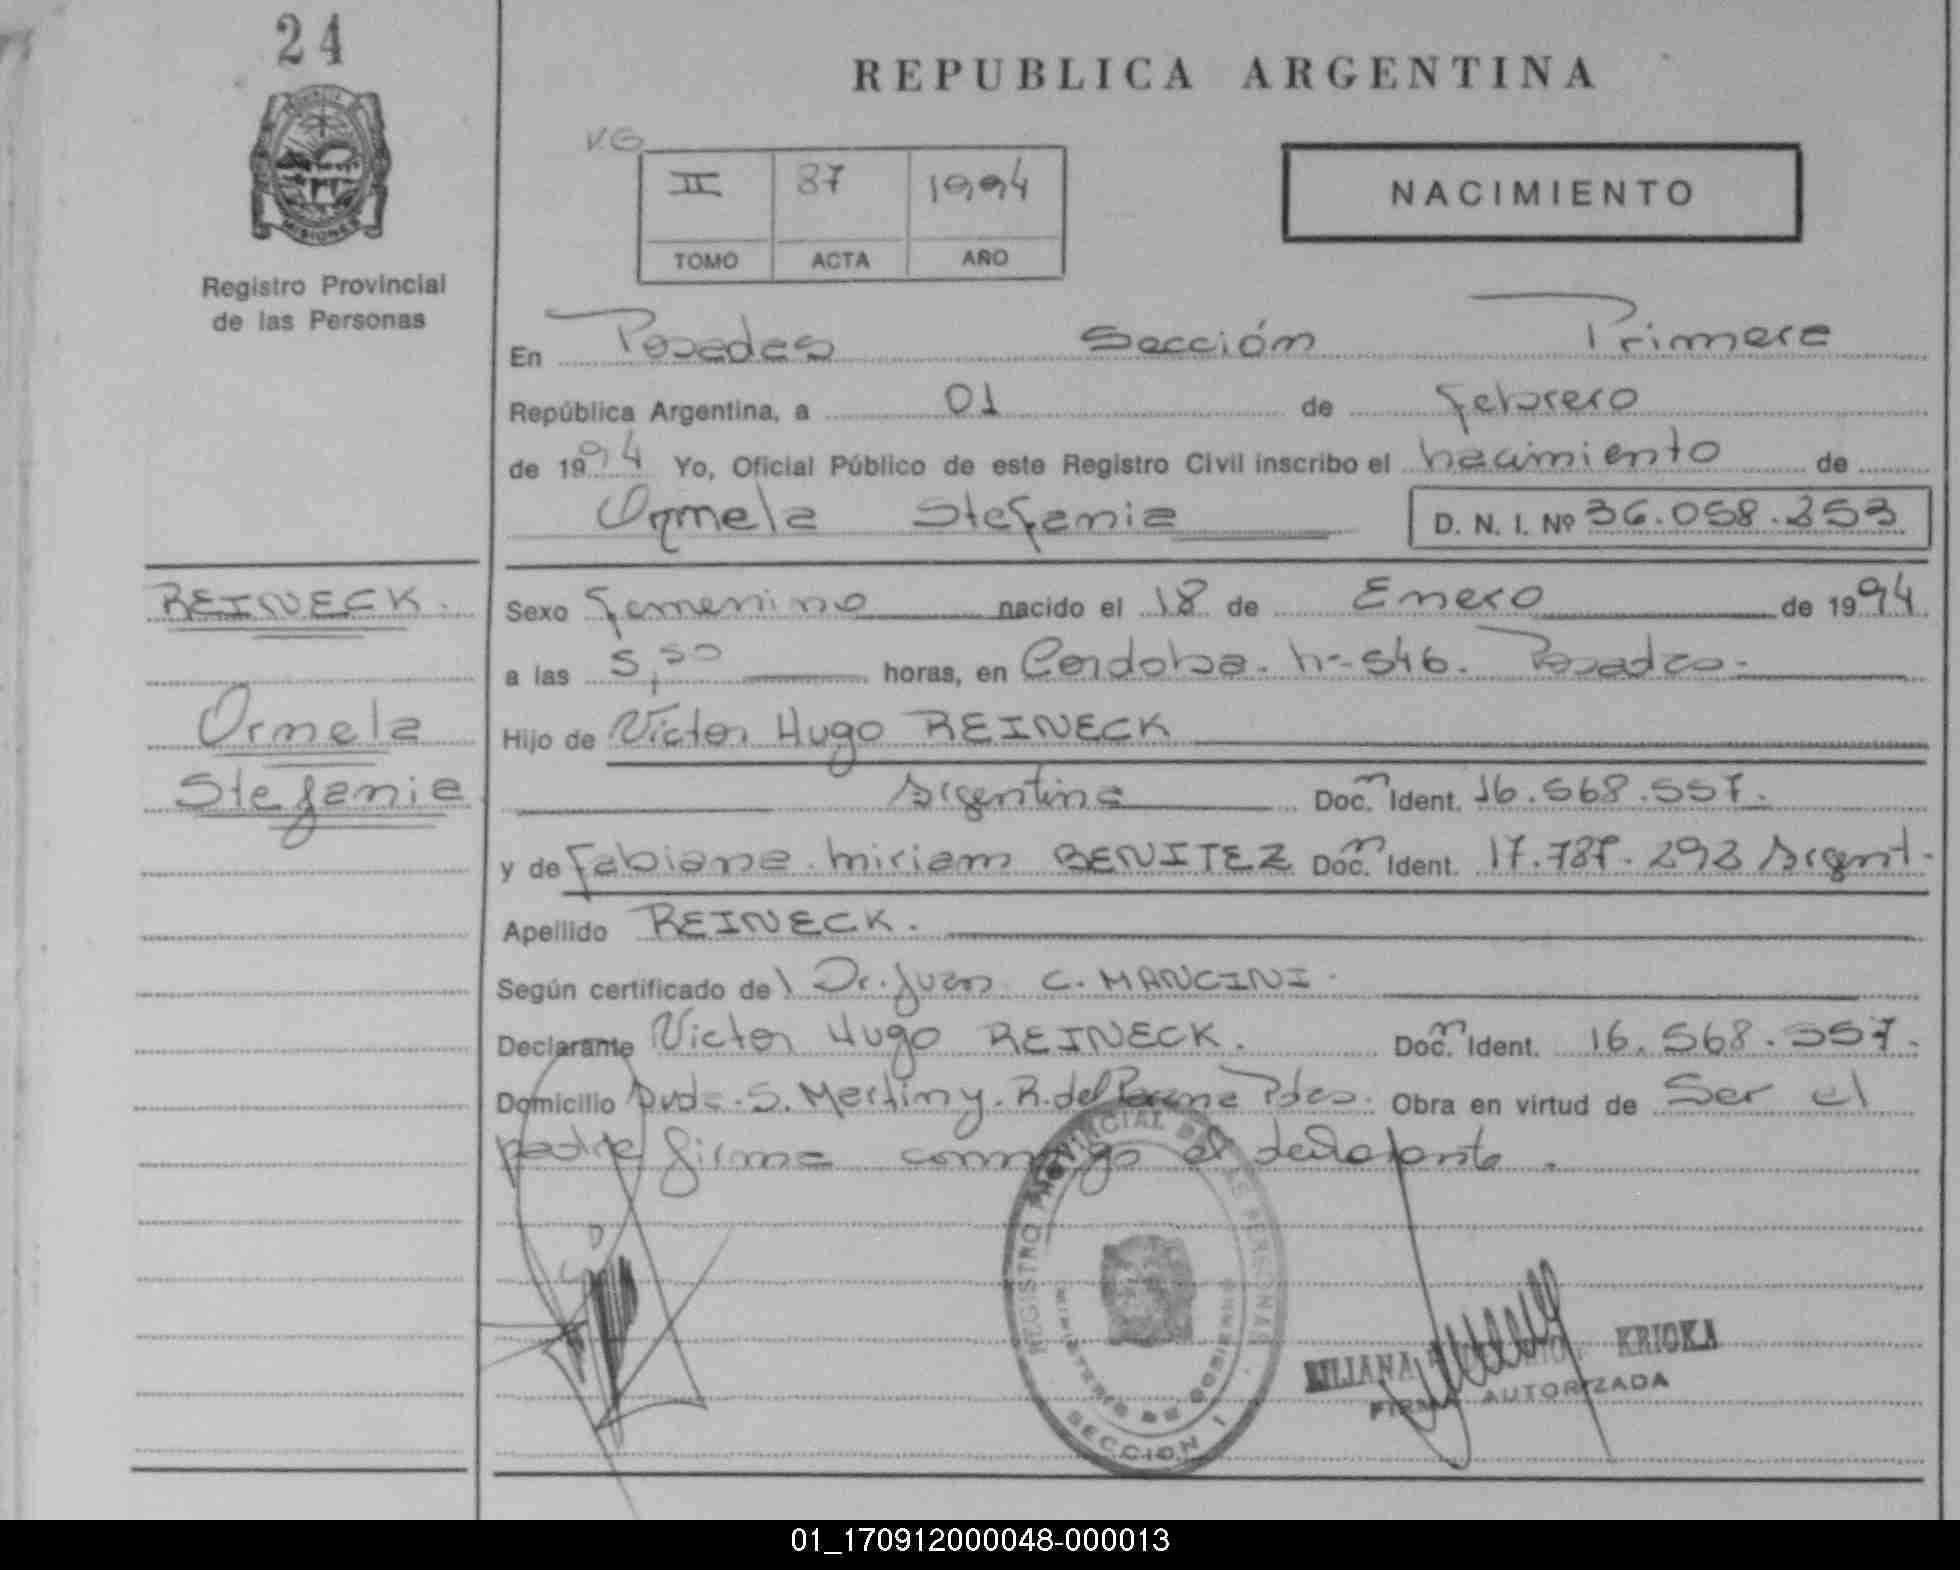 24
REPUBLICA ARGENTINA
V.G
II 87 1994
TOMO ACTA AÑO
NACIMIENTO
MISIONES
Registro Provincial
de las Personas
En Posadas Sección Primera
República Argentina, a 01 de Febrero
de 1994 Yo, Oficial Público de este Registro Civil inscribo el nacimiento de
Ornela Stefania D. N. I. Nº 36.058.253
REINECK.
Ornela
Stefania
Sexo femenino nacido el 18 de Enero de 1994
a las 5,50 horas, en Cordoba. nº 546. Posadas.
Hijo de Victor Hugo REINECK
Argentina Doc. Ident. 16.568.557.
y de Fabiana Miriam BENITEZ Doc. Ident. 17.787.292 Argent.
Apellido REINECK.
Según certificado del Dr. Juan C. MANCINI.
Declarante Victor Hugo REINECK. Doc. Ident. 16.568.557.
Domicilio Avda. S. Martin y R. del Parana Pdas. Obra en virtud de Ser el
padre firma conmigo el declarante.
REGISTRO PROVINCIAL DE LAS PERSONAS
MINISTERIO DE GOBIERNO
SECCION 1
LILIANA KRIOKA
FIRMA AUTORIZADA
01_170912000048-000013